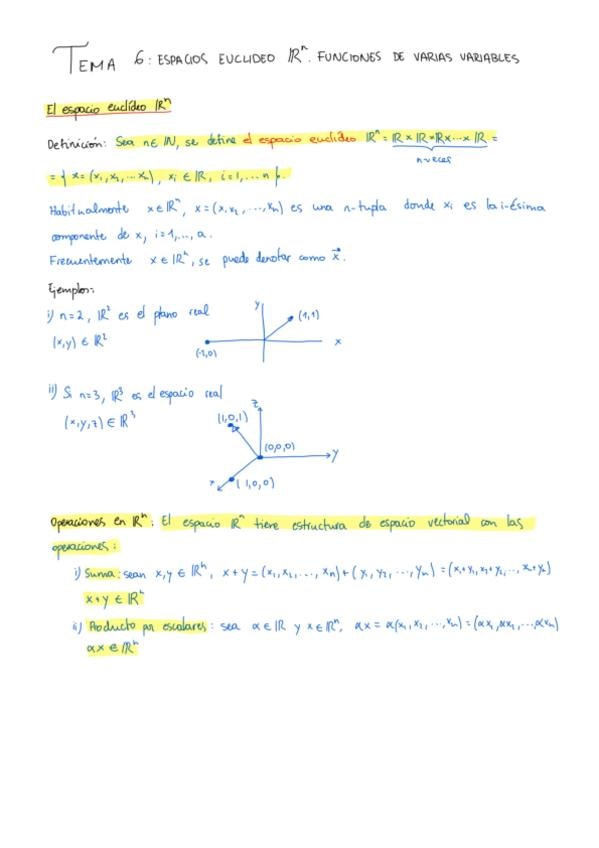 TEMA 6: ESPACIOS EUCLIDEO ℝⁿ. FUNCIONES DE VARIAS VARIABLES
El espacio euclídeo ℝⁿ
Definición: Sea n∈ℕ, se define el espacio euclídeo ℝⁿ = ℝ×ℝ×ℝ×...×ℝ =
n veces
= { x = (x₁, x₂, ... xₙ), xᵢ ∈ ℝ, i = 1, ... n }.
Habitualmente x∈ℝⁿ, x = (x, x₂, ..., xₙ) es una n-tupla donde xᵢ es la i-ésima
componente de x, i=1,..., a.
Frecuentemente x∈ℝⁿ, se puede denotar como x⃗.
Ejemplos:
i) n=2, ℝ² es el plano real
(x,y) ∈ ℝ²
y
(1,1)
x
(-1,0)
ii) Si n=3, ℝ³ es el espacio real
(x,y,z) ∈ ℝ³
z
(1,0,1)
(0,0,0)
y
(1,0,0)
Operaciones en ℝⁿ: El espacio ℝⁿ tiene estructura de espacio vectorial con las
operaciones:
i) Suma: sean x,y ∈ ℝⁿ, x+y = (x₁, x₂, ..., xₙ) + (y₁, y₂, ..., yₙ) = (x₁+y₁, x₂+y₂, ..., xₙ+yₙ)
x+y ∈ ℝⁿ
ii) Producto por escalares: sea α∈ℝ y x∈ℝⁿ, αx = α(x₁, x₂, ..., xₙ) = (αx₁, αx₂, ..., αxₙ)
αx ∈ ℝⁿ